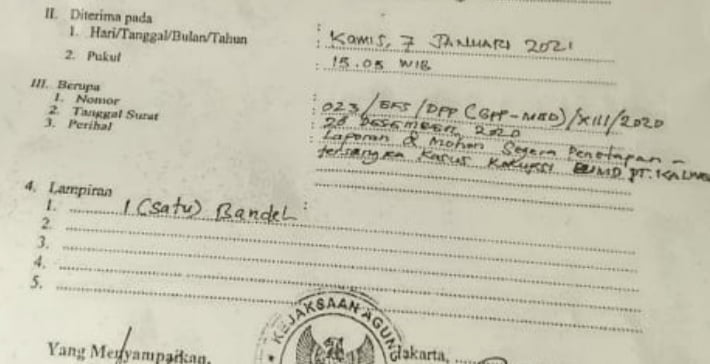 II. Diterima pada
1. Hari/Tanggal/Bulan/Tahun : Kamis, 7 JANUARI 2021
2. Pukul : 15.05 WIB
III. Berupa
1. Nomor : 023/EKS/DPP (GPP-MBD)/XIII/2020
2. Tanggal Surat : 28 DESEMBER 2020
3. Perihal : Laporan & Mohon Segera Penetapan -
tersangka Kasus Korupsi BUMD PT.
4. Lampiran :
1. 1 (Satu) Bandel
2.
3.
4.
5.
KEJAKSAAN AGUNG
Yang Menyampaikan,
Jakarta,